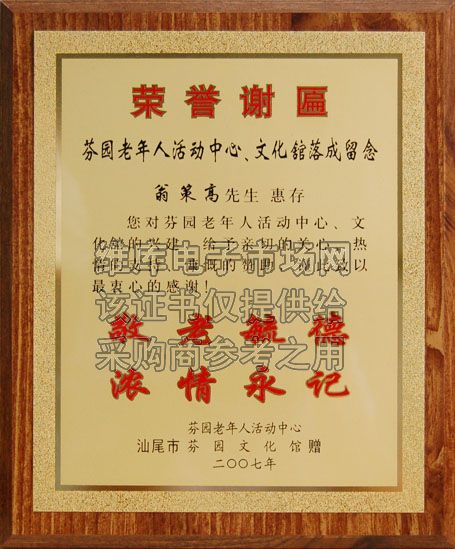 荣誉谢匾
芬园老年人活动中心、文化舘落成留念
翁策高先生 惠存
您对芬园老年人活动中心、文
化舘的兴建，给予亲切的关心、热
以
最衷心的感谢！
维库电子市场网
该证书仅提供给
采购商参考之用
敬老毓德
浓情永记
芬园老年人活动中心
汕尾市 芬园文化舘 赠
二〇〇七年